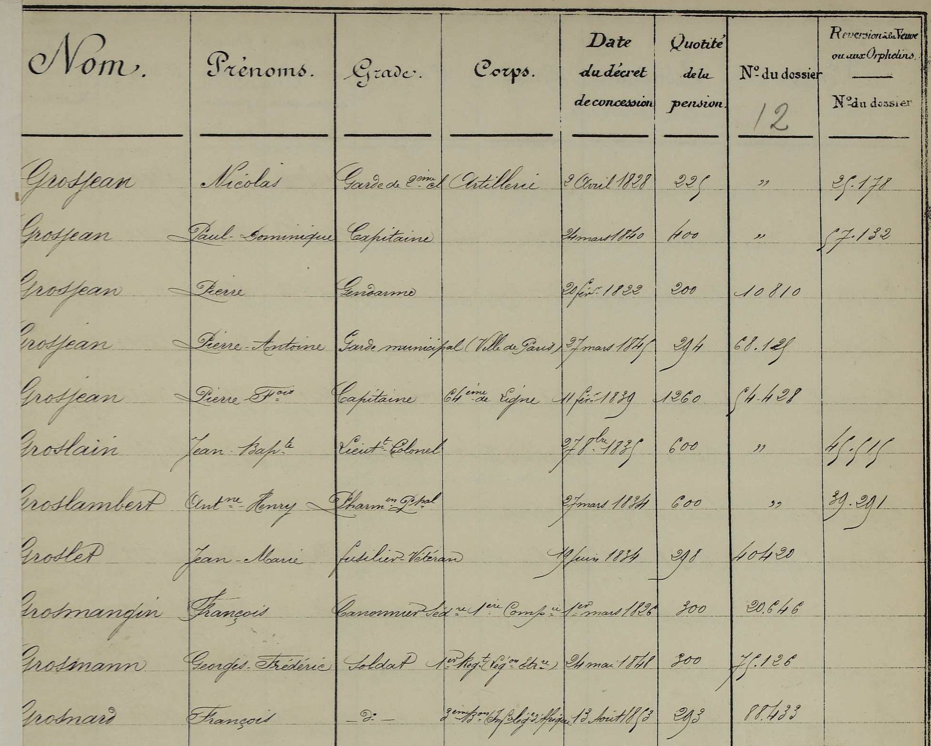 Nom. Prénoms. Grade. Corps. Date du décret de concession Quotité de la pension. N° du dossier Reversion à la Veuve ou aux Orphelins. N° du dossier
12
Grosjean Nicolas Garde de 2ème cl Artillerie 2 Avril 1828 225 " 25.178
Grosjean Paul-Dominique Capitaine 24 mars 1840 400 " 57.132
Grosjean Pierre Gendarme 20 fév. 1822 200 10810
Grosjean Pierre-Antoine Garde municipal (Ville de Paris) 27 mars 1845 294 68.125
Grosjean Pierre Fois Capitaine 64ème de Ligne 11 fév. 1839 1260 54.428
Groslain Jean Bapte Lieutt Colonel 27 8bre 1835 600 " 45.515
Groslambert Antne Henry Pharmen Ppal 27 mars 1834 600 " 39.291
Groslet Jean-Marie fusilier-Vétéran 19 juin 1834 298 40420
Grosmangin François Canonnier Sédre 1ère Compie 1er mars 1826 300 20.646
Grosmann Georges-Frédéric Soldat 1er Regt (Légon Etre) 24 mai 1848 300 75.126
Grosnard François d° 3ème Bon Inf. lég. d'Afrique 13 Août 1853 293 88.433